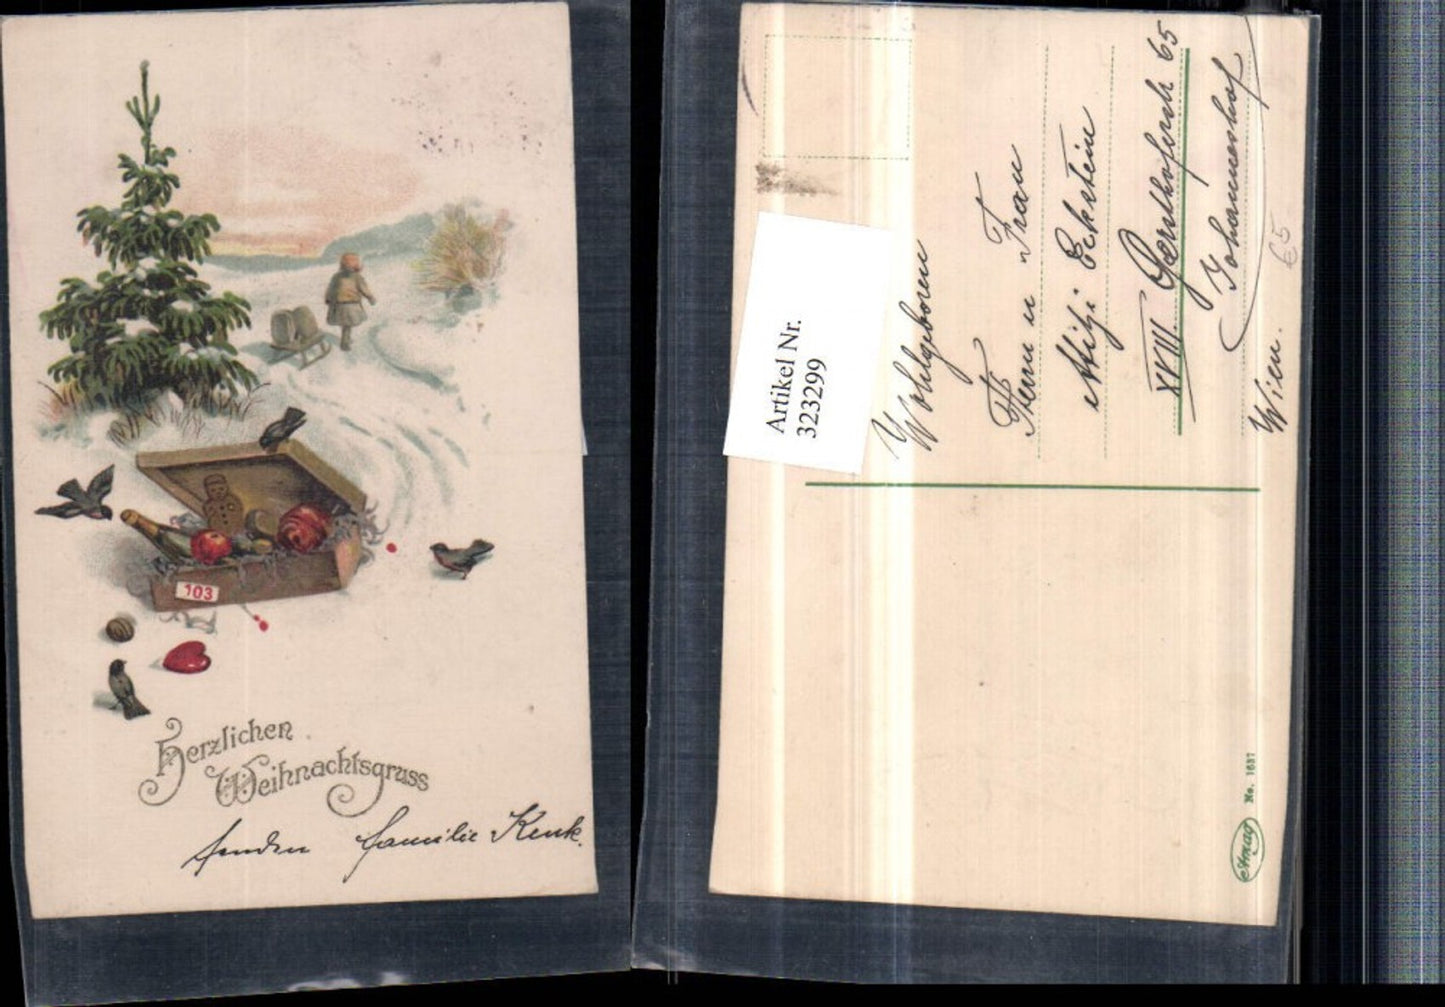 103
Herzlichen
Weihnachtsgruss
senden familie Kenk.
Artikel Nr.
323299
Wohlgeboren
Herrn u Frau
Eckstein
XVIII. Gersthoferstr 65
Johanneshof
Wien.
65
Amag No. 1637